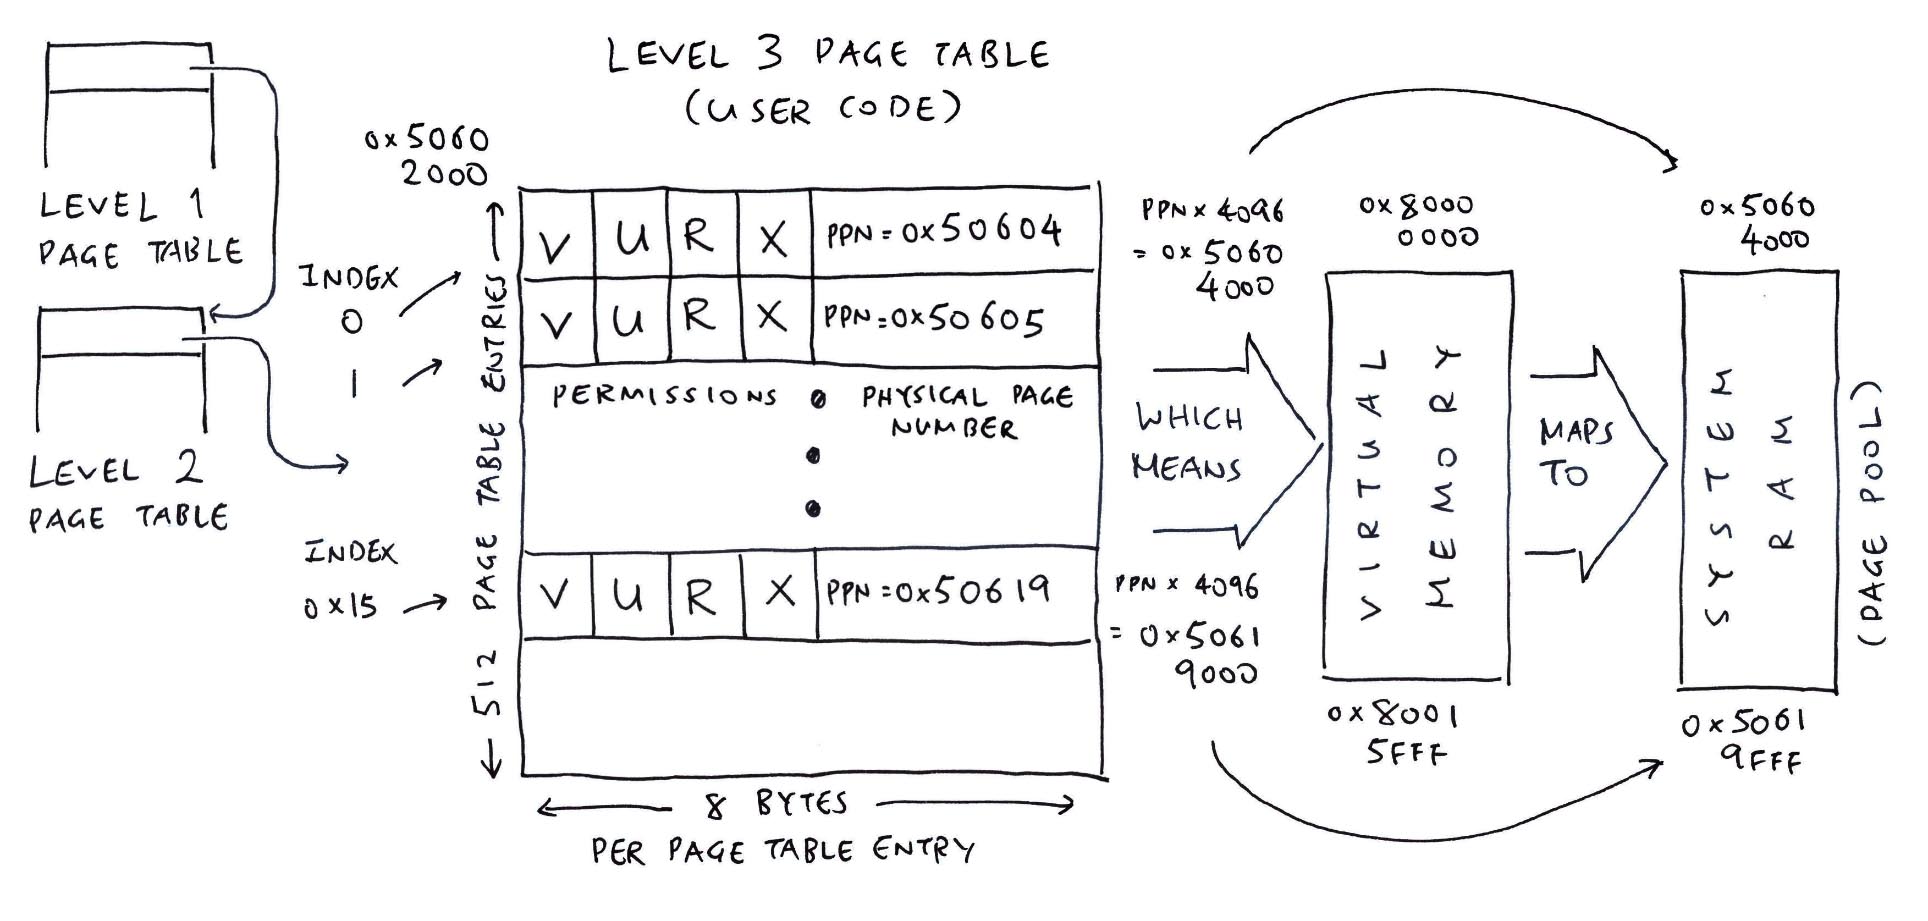 LEVEL 3 PAGE TABLE
(USER CODE)
LEVEL 1
PAGE TABLE
LEVEL 2
PAGE TABLE
0x5060
2000
INDEX
0
1
INDEX
0x15
512 PAGE TABLE ENTRIES
V U R X PPN=0x50604
V U R X PPN=0x50605
PERMISSIONS
PHYSICAL PAGE
NUMBER
V U R X PPN=0x50619
8 BYTES
PER PAGE TABLE ENTRY
PPN x 4096
= 0x5060
4000
WHICH
MEANS
PPN x 4096
= 0x5061
9000
0x8000
0000
VIRTUAL
MEMORY
0x8001
5FFF
MAPS
TO
0x5060
4000
SYSTEM
RAM
0x5061
9FFF
(PAGE POOL)